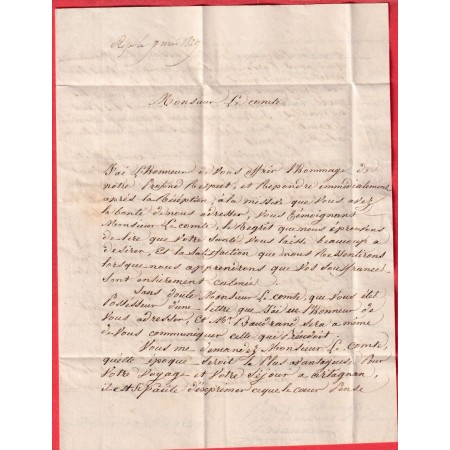 Monsieur Le comte
J'ai l'honneur de vous offrir l'hommage de
notre Profond Respect, et Repondre immédiatement
après la Réception, a la missive que vous avez
la bonté de nous adresser, vous Témoignant
Monsieur Le comte, le Regret que nous éprouvons
de lire que Votre Santé Vous laisse beaucoup a
desirer, et la Satisfaction que nous Ressentirons
lorsque nous apprendrons que Vos souffrances
sont entièrement calmées.
Sans doute Monsieur Le comte, que vous êtes
Possesseur d'une Lettre que J'ai eu l'Honneur de
Vous adresser, et Mr. Baudrand sera a même
de vous communiquer celle que
Vous me demandez Monsieur Le comte
quelle époque seroit la Plus avantageuse Pour
Votre Voyage et Votre Séjour a artagnan,
il est facile d'exprimer ce que le cœur Pense